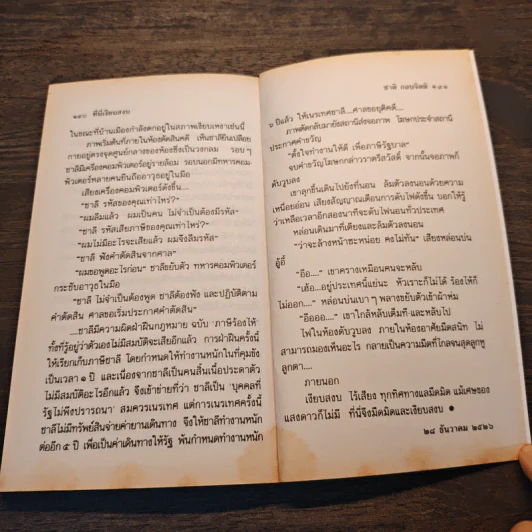 ๑๔๐ ที่นี่เงียบสงบ
ในขณะที่บ้านเมืองกำลังตกอยู่ในสภาพเงียบเหงาเช่นนี้
ภาพเริ่มต้นที่ภายในห้องตัดสินคดี เห็นชาลียืนเปลือย
กายอยู่ตรงจุดศูนย์กลางของห้องซึ่งเป็นวงกลม รอบๆ
ชาลีมีเครื่องคอมพิวเตอร์อยู่รายล้อม รอบนอกมีทหารคอม-
พิวเตอร์หลายคนยืนถืออาวุธอยู่ในมือ
เสียงเครื่องคอมพิวเตอร์ดังขึ้น...
"ชาลี รหัสของคุณเท่าไหร่?"
"ผมลืมแล้ว ผมเป็นคน ไม่จำเป็นต้องมีรหัส"
"ชาลี รหัสเสียภาษีของคุณเท่าไหร่?"
"ผมไม่มีอะไรจะเสียแล้ว ผมจึงลืมรหัส"
"ชาลี ฟังคำตัดสินจากศาล"
"ผมขอพูดอะไรก่อน" ชาลีขยับตัว ทหารคอมพิวเตอร์
กระชับอาวุธในมือ
"ชาลี ไม่จำเป็นต้องพูด ชาลีต้องฟัง และปฏิบัติตาม
คำตัดสิน ศาลขอเริ่มประกาศคำตัดสิน"
...ชาลีมีความผิดฝ่าฝืนกฎหมาย ฉบับ 'ภาษีร้องไห้'
ทั้งที่รู้อยู่ว่าตัวเองไม่มีสมบัติจะเสียอีกแล้ว การฝ่าฝืนครั้งนี้
ให้เรียกเก็บภาษีชาลี โดยกำหนดให้ทำงานหนักในที่คุมขัง
เป็นเวลา ๑ ปี และเนื่องจากชาลีเป็นคนสิ้นเนื้อประดาตัว
ไม่มีสมบัติอะไรอีกแล้ว จึงเข้าข่ายที่ว่า ชาลีเป็น 'บุคคลที่
รัฐไม่พึงปรารถนา' สมควรเนรเทศ แต่การเนรเทศครั้งนี้
ชาลีไม่มีทรัพย์สินจ่ายค่ายานเดินทาง จึงให้ชาลีทำงานหนัก
ต่ออีก ๕ ปี เพื่อเป็นค่าเดินทางให้รัฐ พ้นกำหนดทำงานหนัก
ชาติ กอบจิตติ ๑๔๑
๖ ปีแล้ว ให้เนรเทศชาลี....ศาลขอยุติคดี...
ภาพตัดกลับมายังสถานีส่งจอภาพ โฆษกประจำสถานี
ประกาศคำขวัญ
"ตั้งใจทำงานให้ดี เพื่อภาษีรัฐบาล"
จบคำขวัญโฆษกกล่าวราตรีสวัสดิ์ จากนั้นจอภาพก็
ดับวูบลง
เขาลุกขึ้นเดินไปยังที่นอน ล้มตัวลงนอนด้วยความ
เหนื่อยอ่อน เสียงสัญญาณเตือนการดับไฟดังขึ้น บอกให้รู้
ว่าเหลือเวลาอีกสองนาทีจะดับไฟนอนทั่วประเทศ
หล่อนเดินมาที่เตียงและล้มตัวลงนอน
"ว่าจะล้างหน้าซะหน่อย คงไม่ทัน" เสียงหล่อนบ่น
อู้อี้
"อือ...." เขาครางเหมือนคนจะหลับ
"เฮ้อ...อยู่ประเทศนี้แย่นะ หัวเราะก็ไม่ได้ ร้องไห้ก็
ไม่ออก...." หล่อนบ่นเบาๆ พลางขยับตัวเข้าผ้าห่ม
"อืออออ...." เขาใกล้หลับเต็มที และหลับไป
ไฟในห้องดับวูบลง ภายในห้องอาศัยมืดสนิท ไม่
สามารถมองเห็นอะไร กลายเป็นความมืดที่ไกลจนสุดลูกหู
ลูกตา....
ภายนอก
เงียบสงบ ไร้เสียง ทุกทิศทางแลมืดมิด แม้เศษของ
แสงดาวก็ไม่มี ที่นี่จึงมืดมิดและเงียบสงบ ●
๒๘ ธันวาคม ๒๕๒๖